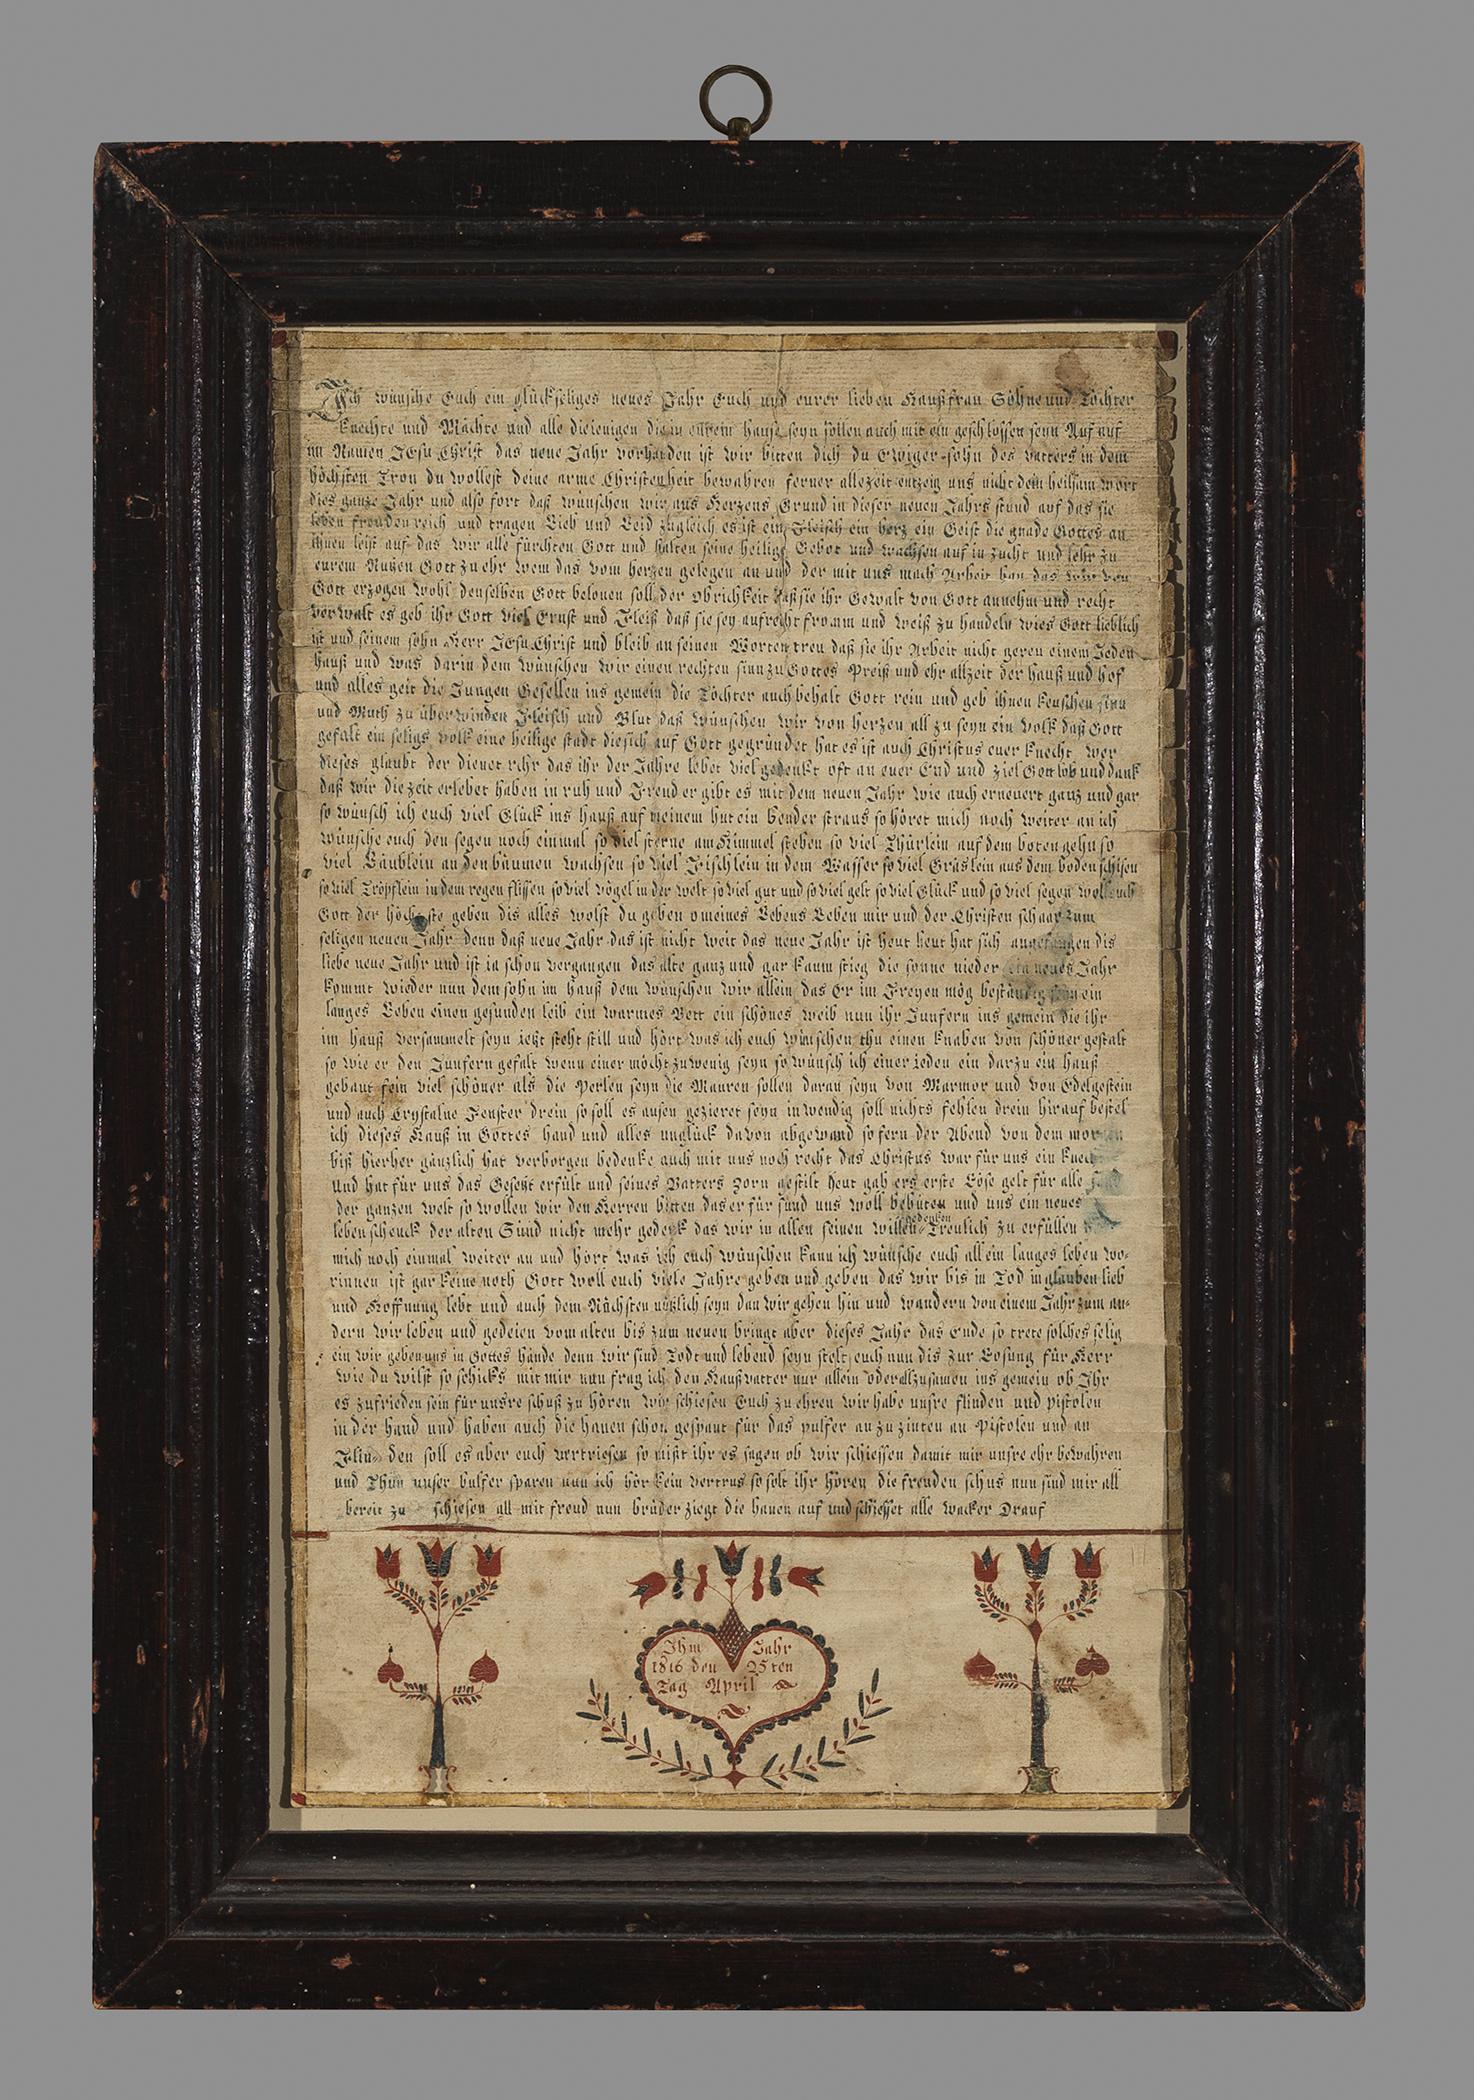 Ich wünsche Euch ein glückseliges neues Jahr Euch und eurer lieben Haußfrau Söhne und Töchter
knechte und Mächte und alle diejenigen die in eurem hause seyn sollen auch mit ein geschlossen seyn Auf auf
im Namen JEsu Christ das neue Jahr vorhanden ist wir bitten dich du Ewiger-sohn des vatters in dem
höchsten Tron du wollest deine arme Christenheit bewahren ferner allezeit entzeig uns nicht dein heilsam wort
dies ganze Jahr und also fort daß wünschen wir aus Herzens Grund in dieser neuen Jahrs stund auf das sie
leben freuden reich und tragen Lieb und Leid zugleich es ist ein Fleisch ein herz ein Geist die gnade Gottes an
ihnen leist auf das wir alle fürchten Gott und halten seine heilige Gebot und wachsen auf in zucht und lehr zu
eurem Nutzen Gott zu ehr wem das vom herzen gelegen an und der mit uns mach Arbeit han das wir von
Gott erzogen wohl denselben Gott belonen soll der Obrichkeit daß sie ihr Gewalt von Gott annehm und recht
verwalt es geb ihr Gott viel Ernst und Fleiß daß sie sey aufrecht fromm und weiß zu handeln wies Gott lieblich
ist und seinem sohn Herr JEsu Christ und bleib an seinen Worten treu daß sie ihr Arbeit nicht geren einem Jeden
hauß und was darin dem wünschen wir einen rechten sinn zu Gottes Preiß und ehr allzeit der hauß und hof
und alles geit die Jungen Gesellen ins gemein die Töchter auch behalt Gott rein und geb ihnen keuschen sinn
und Muth zu überwinden Fleisch und Blut daß wünschen wir von herzen all zu seyn ein Volk daß Gott
gefält ein seligs volk eine heilige stadt die sich auf Gott gegründet hat es ist auch Christus euer knecht wer
dieses glaubt der dienet rehr das ihr der Jahre lebet viel gedenkt oft an euer End und ziel Gott lob und dank
daß wir die zeit erlebet haben in ruh und Freud er gibt es mit dem neuen Jahr wie auch erneuert ganz und gar
so wünsch ich euch viel Glück ins hauß auf meinem hut ein bender straus so höret mich noch weiter an ich
wünsche euch den segen noch einmal so viel sterne am Himmel steben so viel Thürlein auf dem boten gehn so
viel Läublein an den bäumen wachsen so viel Fischlein in dem Wasser so viel Gräslein aus dem boden schisen
so viel Tröpflein in dem regen flissen so viel vögel in der welt so viel gut und so viel gelt so viel Glück und so viel segen woll euch
Gott der höchste geben dis alles wolst du geben o meines Lebens Leben mir und der Christen schaar zum
seligen neuen Jahr denn daß neue Jahr das ist nicht weit das neue Jahr ist heut heut hat sich angefangen dis
liebe neue Jahr und ist ja schon vergangen das alte ganz und gar kaum stieg die sonne nieder ein neues Jahr
kommt wieder nun dem sohn im hauß dem wünschen wir allein das Er im Freyen mög beständig seyn ein
langes Leben einen gesunden leib ein warmes Bett ein schönes weib nun ihr Junfern ins gemein die ihr
im hauß versammelt seyn jetzt steht still und hört was ich euch wünschen thu einen knaben von schöner gestalt
so wie er den Junfern gefalt wenn einer möcht zu wenig seyn so wünsch ich einer jeden ein darzu ein hauß
gebaut fein viel schöner als die Perlen seyn die Mauren sollen daran seyn von Marmor und von Edelgestein
und auch Crystalne Fenster drein so soll es ausen gezieret seyn inwendig soll nichts fehlen drein hirauf bestel
ich dieses Hauß in Gottes hand und alles unglück davon abgewand so fern der Abend von dem morgen
biß hierher gänzlich hat verborgen bedenke auch mit uns noch recht das Christus war für uns ein knec
und hat für uns das Gesetzt erfült und seines Vatters zorn gestilt heut gab ers erste Löse gelt für alle
der ganzen welt so wollen wir den Herren bitten das er für sünd uns woll behüten und uns ein neues
leben schenck der alten Sünd nicht mehr gedenk das wir in allen seinen willen gedenken Treulich zu erfüllen
mich noch einmal weiter an und hört was ich euch wünschen kann ich wünsche euch allein langes leben wo-
rinnen ist gar keine noth Gott woll euch viele Jahre geben und geben das wir bis in Tod in glauben lieb
und Hoffnung lebt und auch dem Nächsten nützlich seyn dan wir gehen hin und wandern von einem Jahr zum an-
dern wir leben und gedeien vom alten bis zum neuen bringt aber dieses Jahr das Ende so trete solches selig
ein wir geben uns in Gottes hände denn wir sind Todt und lebend seyn stelt euch nun dis zur Losung für Herr
wie du wilst so schicks mit mir nun frag ich den Haußvatter nur allein oder allzusamen ins gemein ob Ihr
es zufrieden sein für unsre schuß zu hören wir schiesen Euch zu ehren wir habe unsre flinden und pistolen
in der hand und haben auch die hanen schon gespant für das pulfer an zu zinten an Pistolen und an
Flin- den soll es aber euch vertriesen so müßt ihr es sagen ob wir schiessen damit mir unsre ehr bewahren
und Thun unser bulfer sparen nun ich hör kein vertrus so solt ihr hören die freuden schus nun sind mir all
bereit zu schiesen all mit freud nun brüder ziegt die hanen auf und schiesset alle wacker Drauf
Ihm Jahr
1816 den 25 ten
Tag April